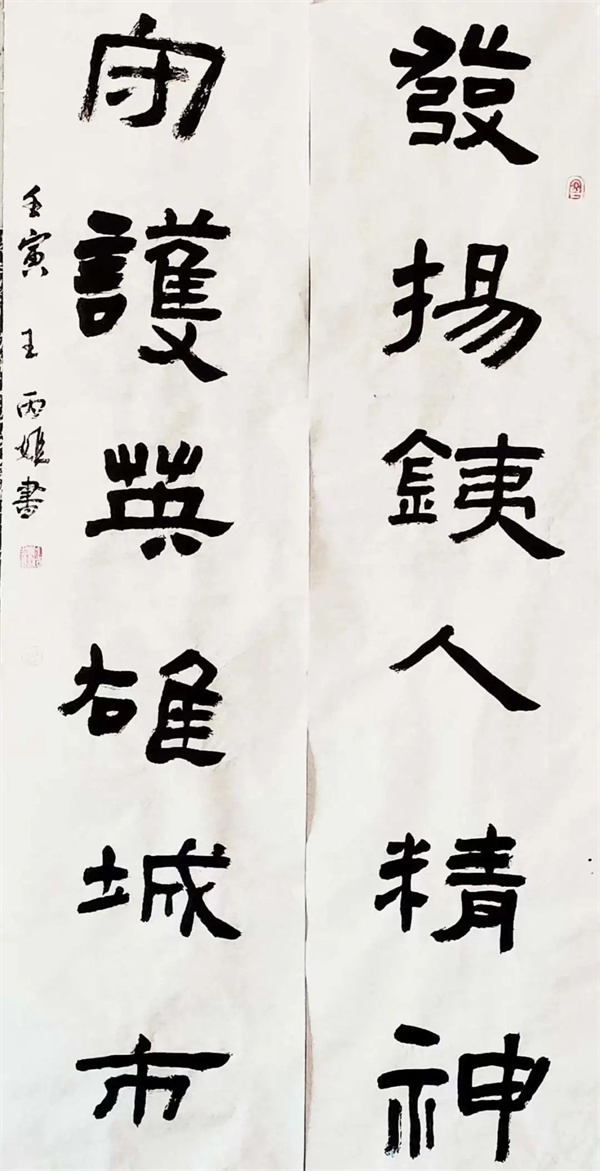 發揚銕人精神
守護英雄城市
壬寅 王丙書